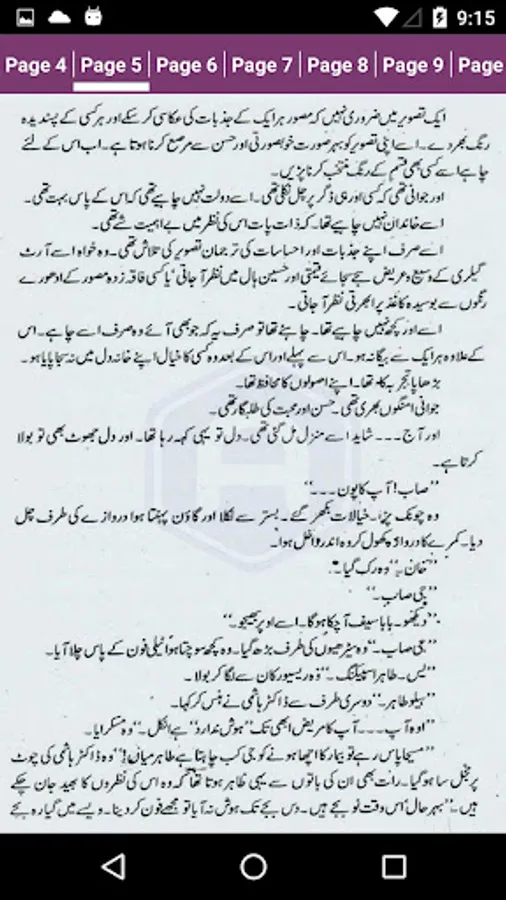 9:15
Page 4 Page 5 Page 6 Page 7 Page 8 Page 9 Page
ایک تصویر میں ضروری نہیں کہ مصور ہر ایک کے جذبات کی عکاسی کر سکے اور ہر کسی کے پسندیدہ
رنگ بھر دے۔ اسے اپنی تصویر کو بہر صورت خوبصورتی اور حسن سے مرصع کرنا ہوتا ہے۔ اب اس کے لئے
چاہے اسے کسی بھی قسم کے رنگ منتخب کرنا پڑیں۔
اور جوانی تھی کہ کسی اور ہی ڈگر پر چل نکلی تھی۔ اسے دولت نہیں چاہیے تھی کہ اس کے پاس بہت تھی۔
اسے خاندان نہیں چاہیے تھا۔ کہ ذات پات اس کی نظر میں بے اہمیت شے تھی۔
اسے صرف اپنے جذبات اور احساسات کی ترجمان تصویر کی تلاش تھی۔ وہ خواہ اسے آرٹ
گیلری کے وسیع و عریض سجے سجائے قیمتی اور حسین ہال میں نظر آ جاتی یا کسی فاقہ زدہ مصور کے ادھورے
رنگوں سے بوسیدہ کاغذ پر ابھرتی نظر آ جاتی۔
اسے اور کچھ نہیں چاہیے تھا۔ چاہئے تھا تو صرف یہ کہ جو بھی آئے وہ صرف اسے چاہے۔ اس
کے علاوہ ہر ایک سے بیگانہ ہو۔ اس سے پہلے اور اس کے بعد وہ کسی کا خیال اپنے خانہ دل میں نہ سجا پایا ہو۔
بڑھاپا تجربہ کار تھا۔ اپنے اصولوں کا محافظ تھا۔
جوانی امنگوں بھری تھی۔ حسن اور محبت کی طلبگار تھی۔
اور آج ۔۔۔ شاید اسے منزل مل گئی تھی۔ دل تو یہی کہہ رہا تھا۔ اور دل جھوٹ بھی تو بولا
کرتا ہے۔
"صاب! آپ کا پون ۔۔۔"
وہ چونک پڑا۔ خیالات بکھر گئے۔ بستر سے نکلا اور گاؤن پہنتا ہوا دروازے کی طرف چل
دیا۔ کمرے کا دروازہ کھول کر وہ اندر داخل ہوا۔
"خان۔" وہ رک گیا۔
"جی صاب۔"
"دیکھو۔ بابا سیف آ چکا ہوگا۔ اسے اوپر بھیجو۔"
"جی صاب۔" وہ سیڑھیوں کی طرف بڑھ گیا۔ وہ کچھ سوچتا ہوا ٹیلی فون کے پاس چلا آیا۔
"یس۔ طاہر اسپیکنگ۔" وہ ریسیور کان سے لگا کر بولا۔
"ہیلو طاہر۔" دوسری طرف سے ڈاکٹر ہاشمی نے ہنس کر کہا۔
"اوہ آپ ۔۔۔ آپ کا مریض ابھی تک "ہوش ندارد" ہے انکل۔" وہ مسکرایا۔
"مسیحا پاس رہے تو بیمار کا اچھا ہونے کو جی کب چاہتا ہے طاہر میاں!" وہ ڈاکٹر ہاشمی کی چوٹ
پر خجل سا ہو گیا۔ رات بھی ان کی باتوں سے یہی ظاہر ہوتا تھا کہ وہ اس کی نظروں کا بھید جان چکے
ہیں۔ "بہر حال اس وقت نو بجے ہیں۔ دس بجے تک ہوش نہ آیا تو مجھے فون کر دینا۔ ویسے میں گیارہ بجے